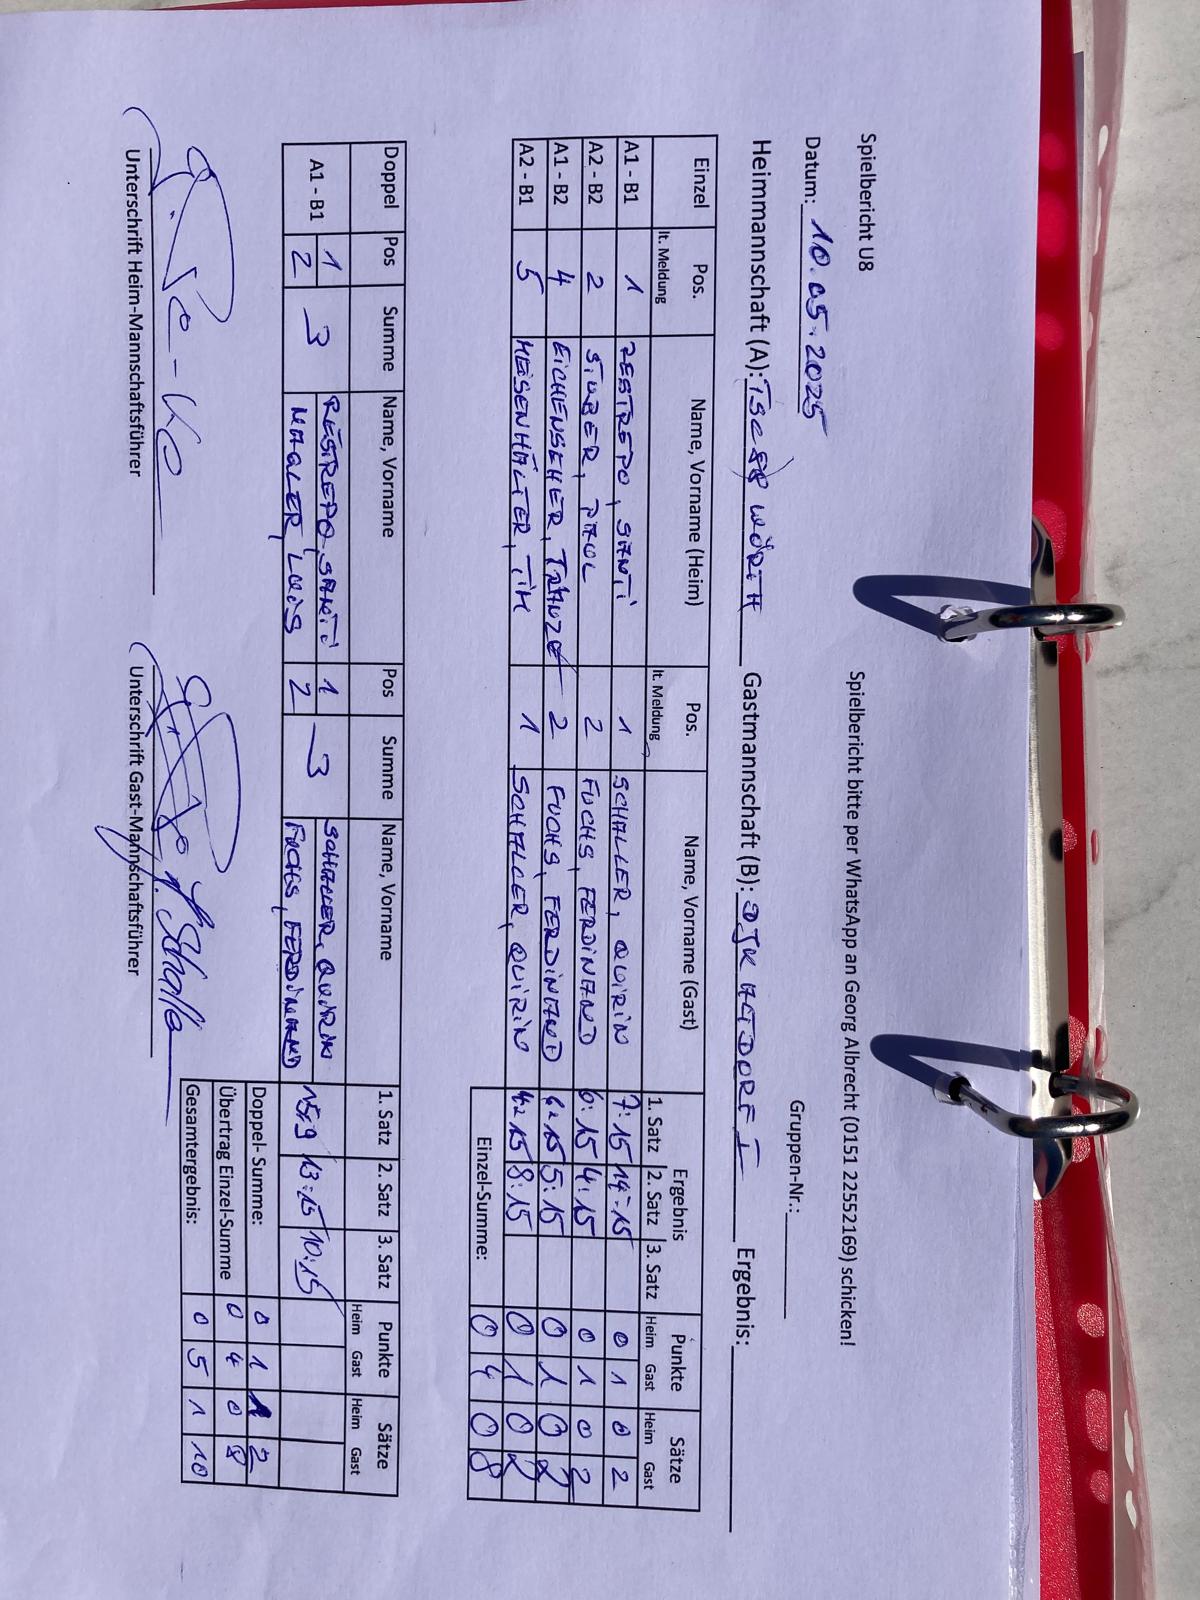 Spielbericht U8
Spielbericht bitte per WhatsApp an Georg Albrecht (0151 22552169) schicken!
Datum: 10.05.2025
Gruppen-Nr.:
Heimmannschaft (A): TSC WÖRTH Gastmannschaft (B): DJK ALTDORF I Ergebnis:
Einzel Pos. lt. Meldung Name, Vorname (Heim) Pos. lt. Meldung Name, Vorname (Gast) Ergebnis 1. Satz 2. Satz 3. Satz Punkte Heim Gast Sätze Heim Gast
A1 - B1 1 RESTREPO, SANTI 1 SCHALLER, QUIRIN 7:15 14:15 0 1 0 2
A2 - B2 2 STUBER, PAUL 2 FUCHS, FERDINAND 6:15 4:15 0 1 0 2
A1 - B2 4 EICHENSEHER, 2 FUCHS, FERDINAND 6:15 5:15 0 1 0 2
A2 - B1 5 MEISENHÄLTER, TIM 1 SCHALLER, QUIRIN 4:15 8:15 0 1 0 2
Einzel-Summe: 0 4 0 8
Doppel Pos Summe Name, Vorname Pos Summe Name, Vorname 1. Satz 2. Satz 3. Satz Punkte Heim Gast Sätze Heim Gast
A1 - B1 1 3 RESTREPO, SANTI 1 3 SCHALLER, QUIRIN 15:9 13:15 10:15
2 LUIS 2 FUCHS, FERDINAND
Doppel- Summe: 0 1 1 2
Übertrag Einzel-Summe 0 4 0 8
Gesamtergebnis: 0 5 1 10
Unterschrift Heim-Mannschaftsführer Unterschrift Gast-Mannschaftsführer